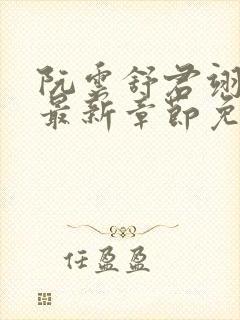 阮云舒君翊
最新章节免
任盈盈